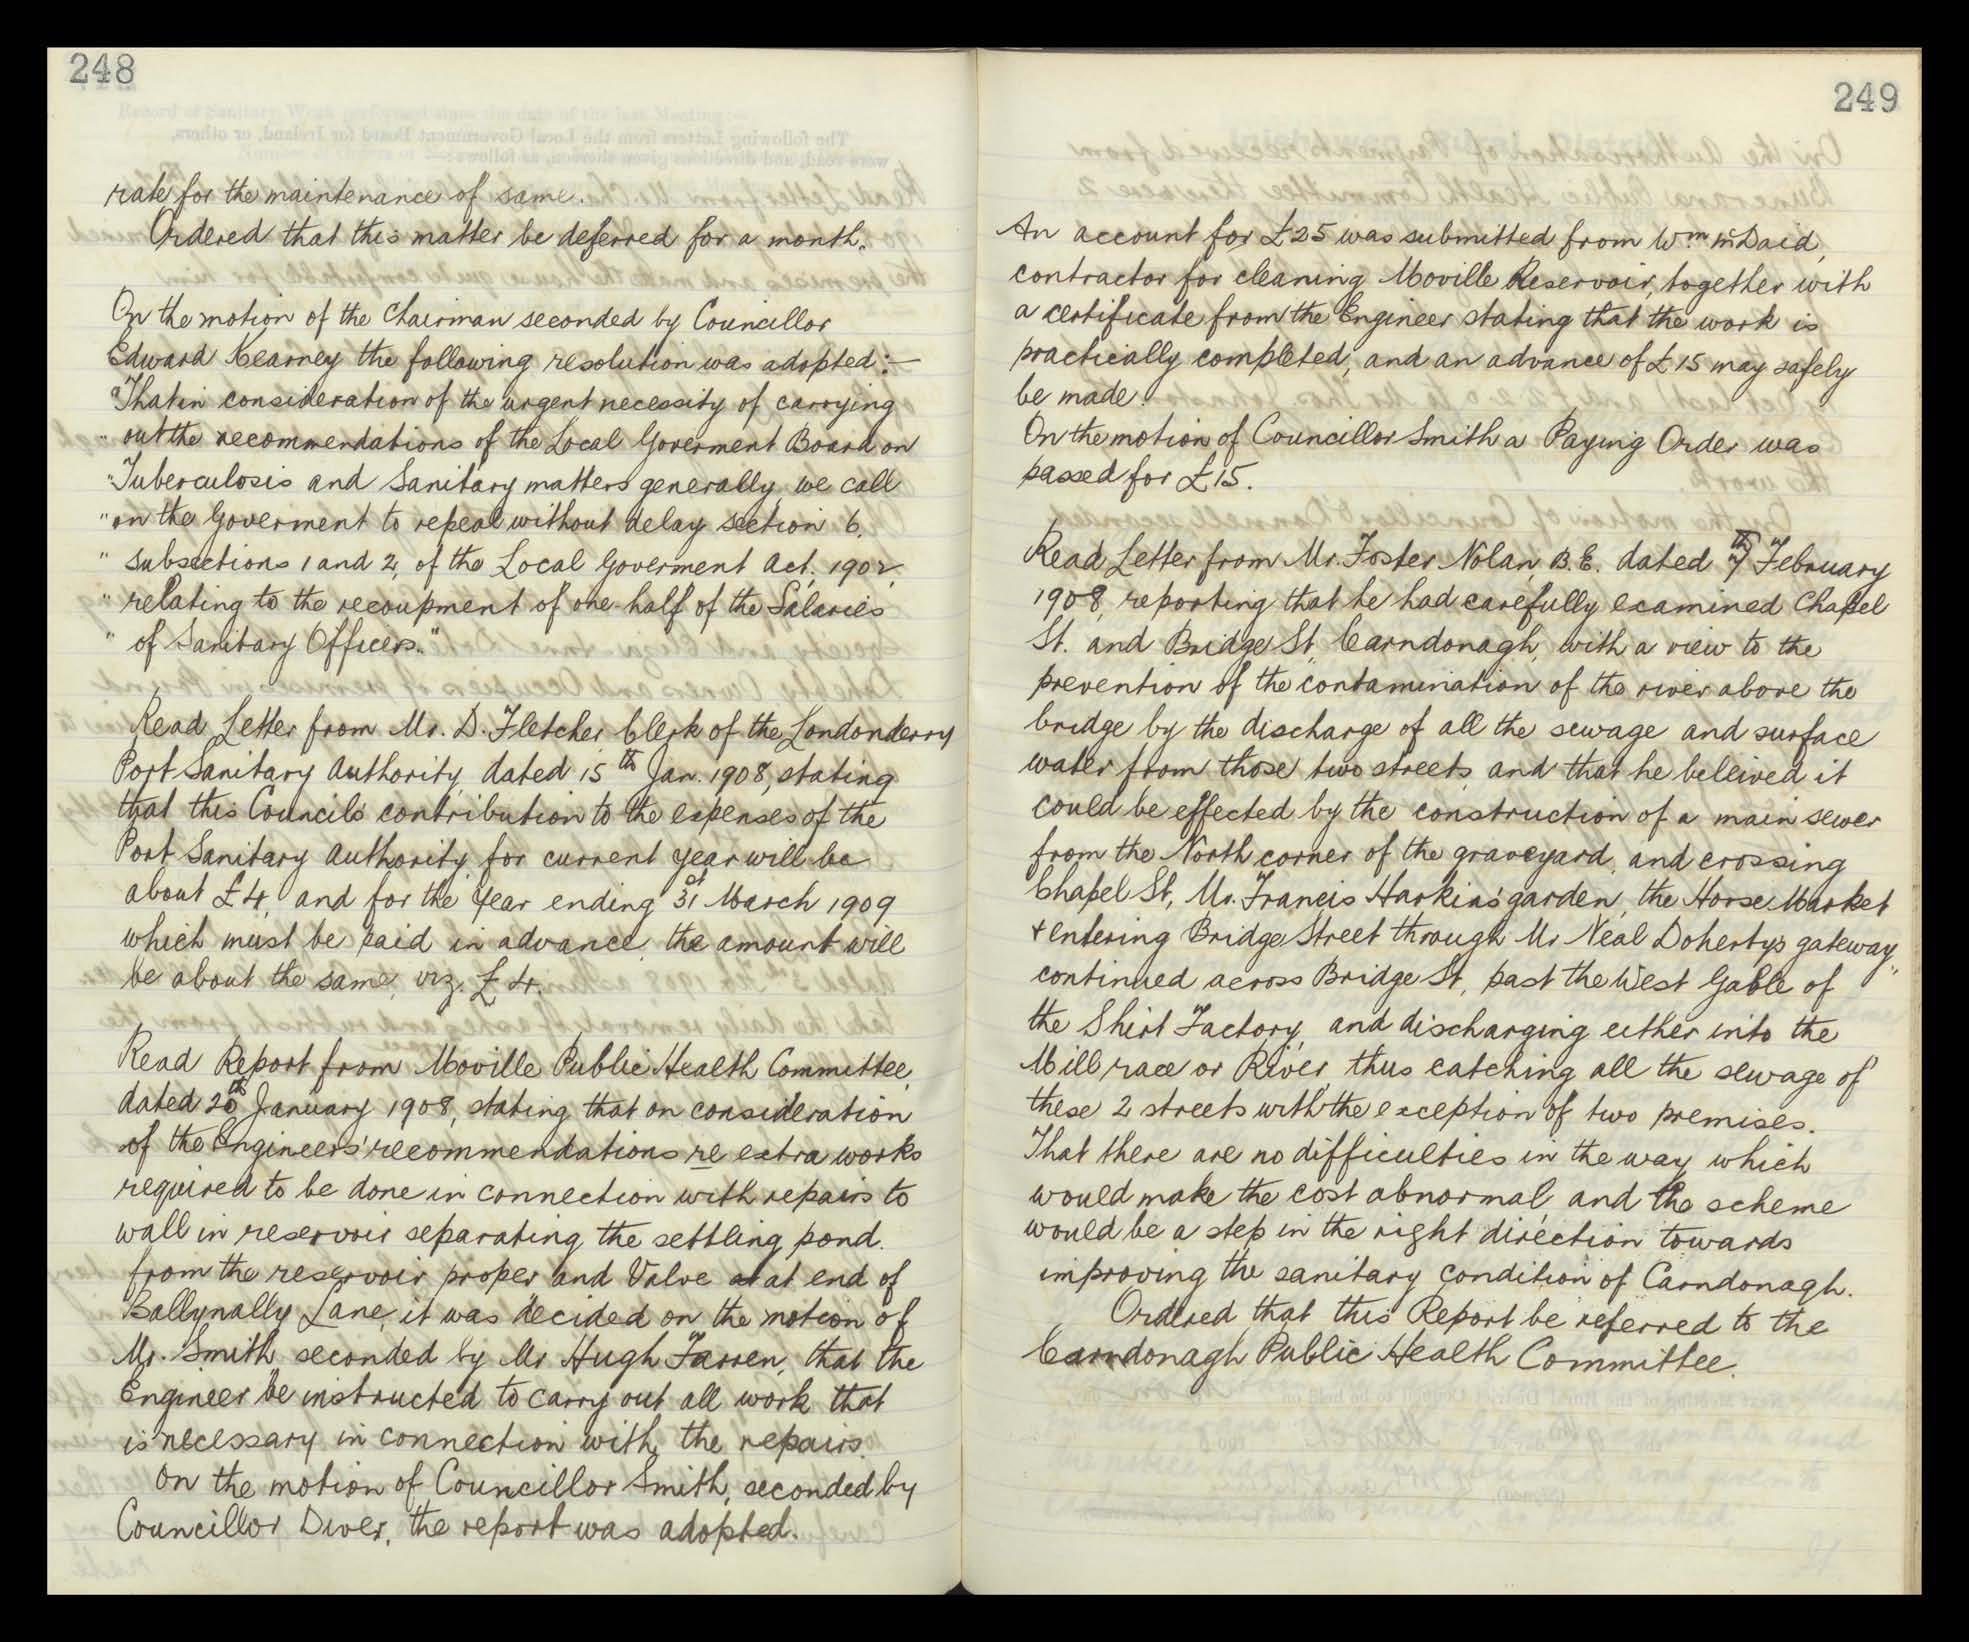 248
rate for the maintenance of same.
Ordered that this matter be deferred for a month.
On the motion of the Chairman seconded by Councillor
Edward Kearney the following resolution was adopted:—
"That in consideration of the urgent necessity of carrying
" out the recommendations of the Local Goverment Board on
"Tuberculosis and Sanitary matters generally, we call
" on the Goverment to repeal without delay section 6,
" subsections 1 and 2, of the Local Goverment Act, 1902,
" relating to the recoupment of one-half of the Salaries
" of Sanitary Officers."
Read Letter from Mr. D. Fletcher Clerk of the Londonderry
Port Sanitary Authority, dated 15th Jan. 1908, stating
that this Council's contribution to the expenses of the
Port Sanitary Authority for current year will be
about £4, and for the Year ending 31st March 1909
which must be paid in advance, the amount will
be about the same, viz. £4.
Read Report from Moville Public Health Committee,
dated 20th January 1908, stating that on consideration
of the Engineers' recommendations re extra works
required to be done in connection with repairs to
wall in reservoir separating the settling pond
from the reservoir proper and Valve at at end of
Ballynally Lane, it was decided on the motion of
Mr. Smith, seconded by Mr Hugh Farren, that the
Engineer be instructed to carry out all work that
is necessary in connection with the repairs.
On the motion of Councillor Smith, seconded by
Councillor Diver, the report was adopted.
249
An account for £25 was submitted from Wm McDaid,
contractor for cleaning Moville Reservoir, together with
a certificate from the Engineer stating that the work is
practically completed, and an advance of £15 may safely
be made.
On the motion of Councillor Smith a Paying Order was
passed for £15.
Read Letter from Mr. Foster Nolan, B.E. dated 7th February
1908, reporting that he had carefully examined Chapel
St. and Bridge St, Carndonagh, with a view to the
prevention of the contamination of the river above the
bridge by the discharge of all the sewage and surface
water from those two streets, and that he beleived it
could be effected by the construction of a main sewer
from the North corner of the graveyard, and crossing
Chapel St, Mr. Francis Harkins' garden, the Horse Market
+ entering Bridge Street through Mr Neal Doherty's gateway,
continued across Bridge St, past the West Gable of
the Shirt Factory, and discharging either into the
Mill race or River, thus catching all the sewage of
these 2 streets with the exception of two premises.
That there are no difficulties in the way which
would make the cost abnormal, and the scheme
would be a step in the right direction towards
improving the sanitary condition of Carndonagh.
Ordered that this Report be referred to the
Carndonagh Public Health Committee.